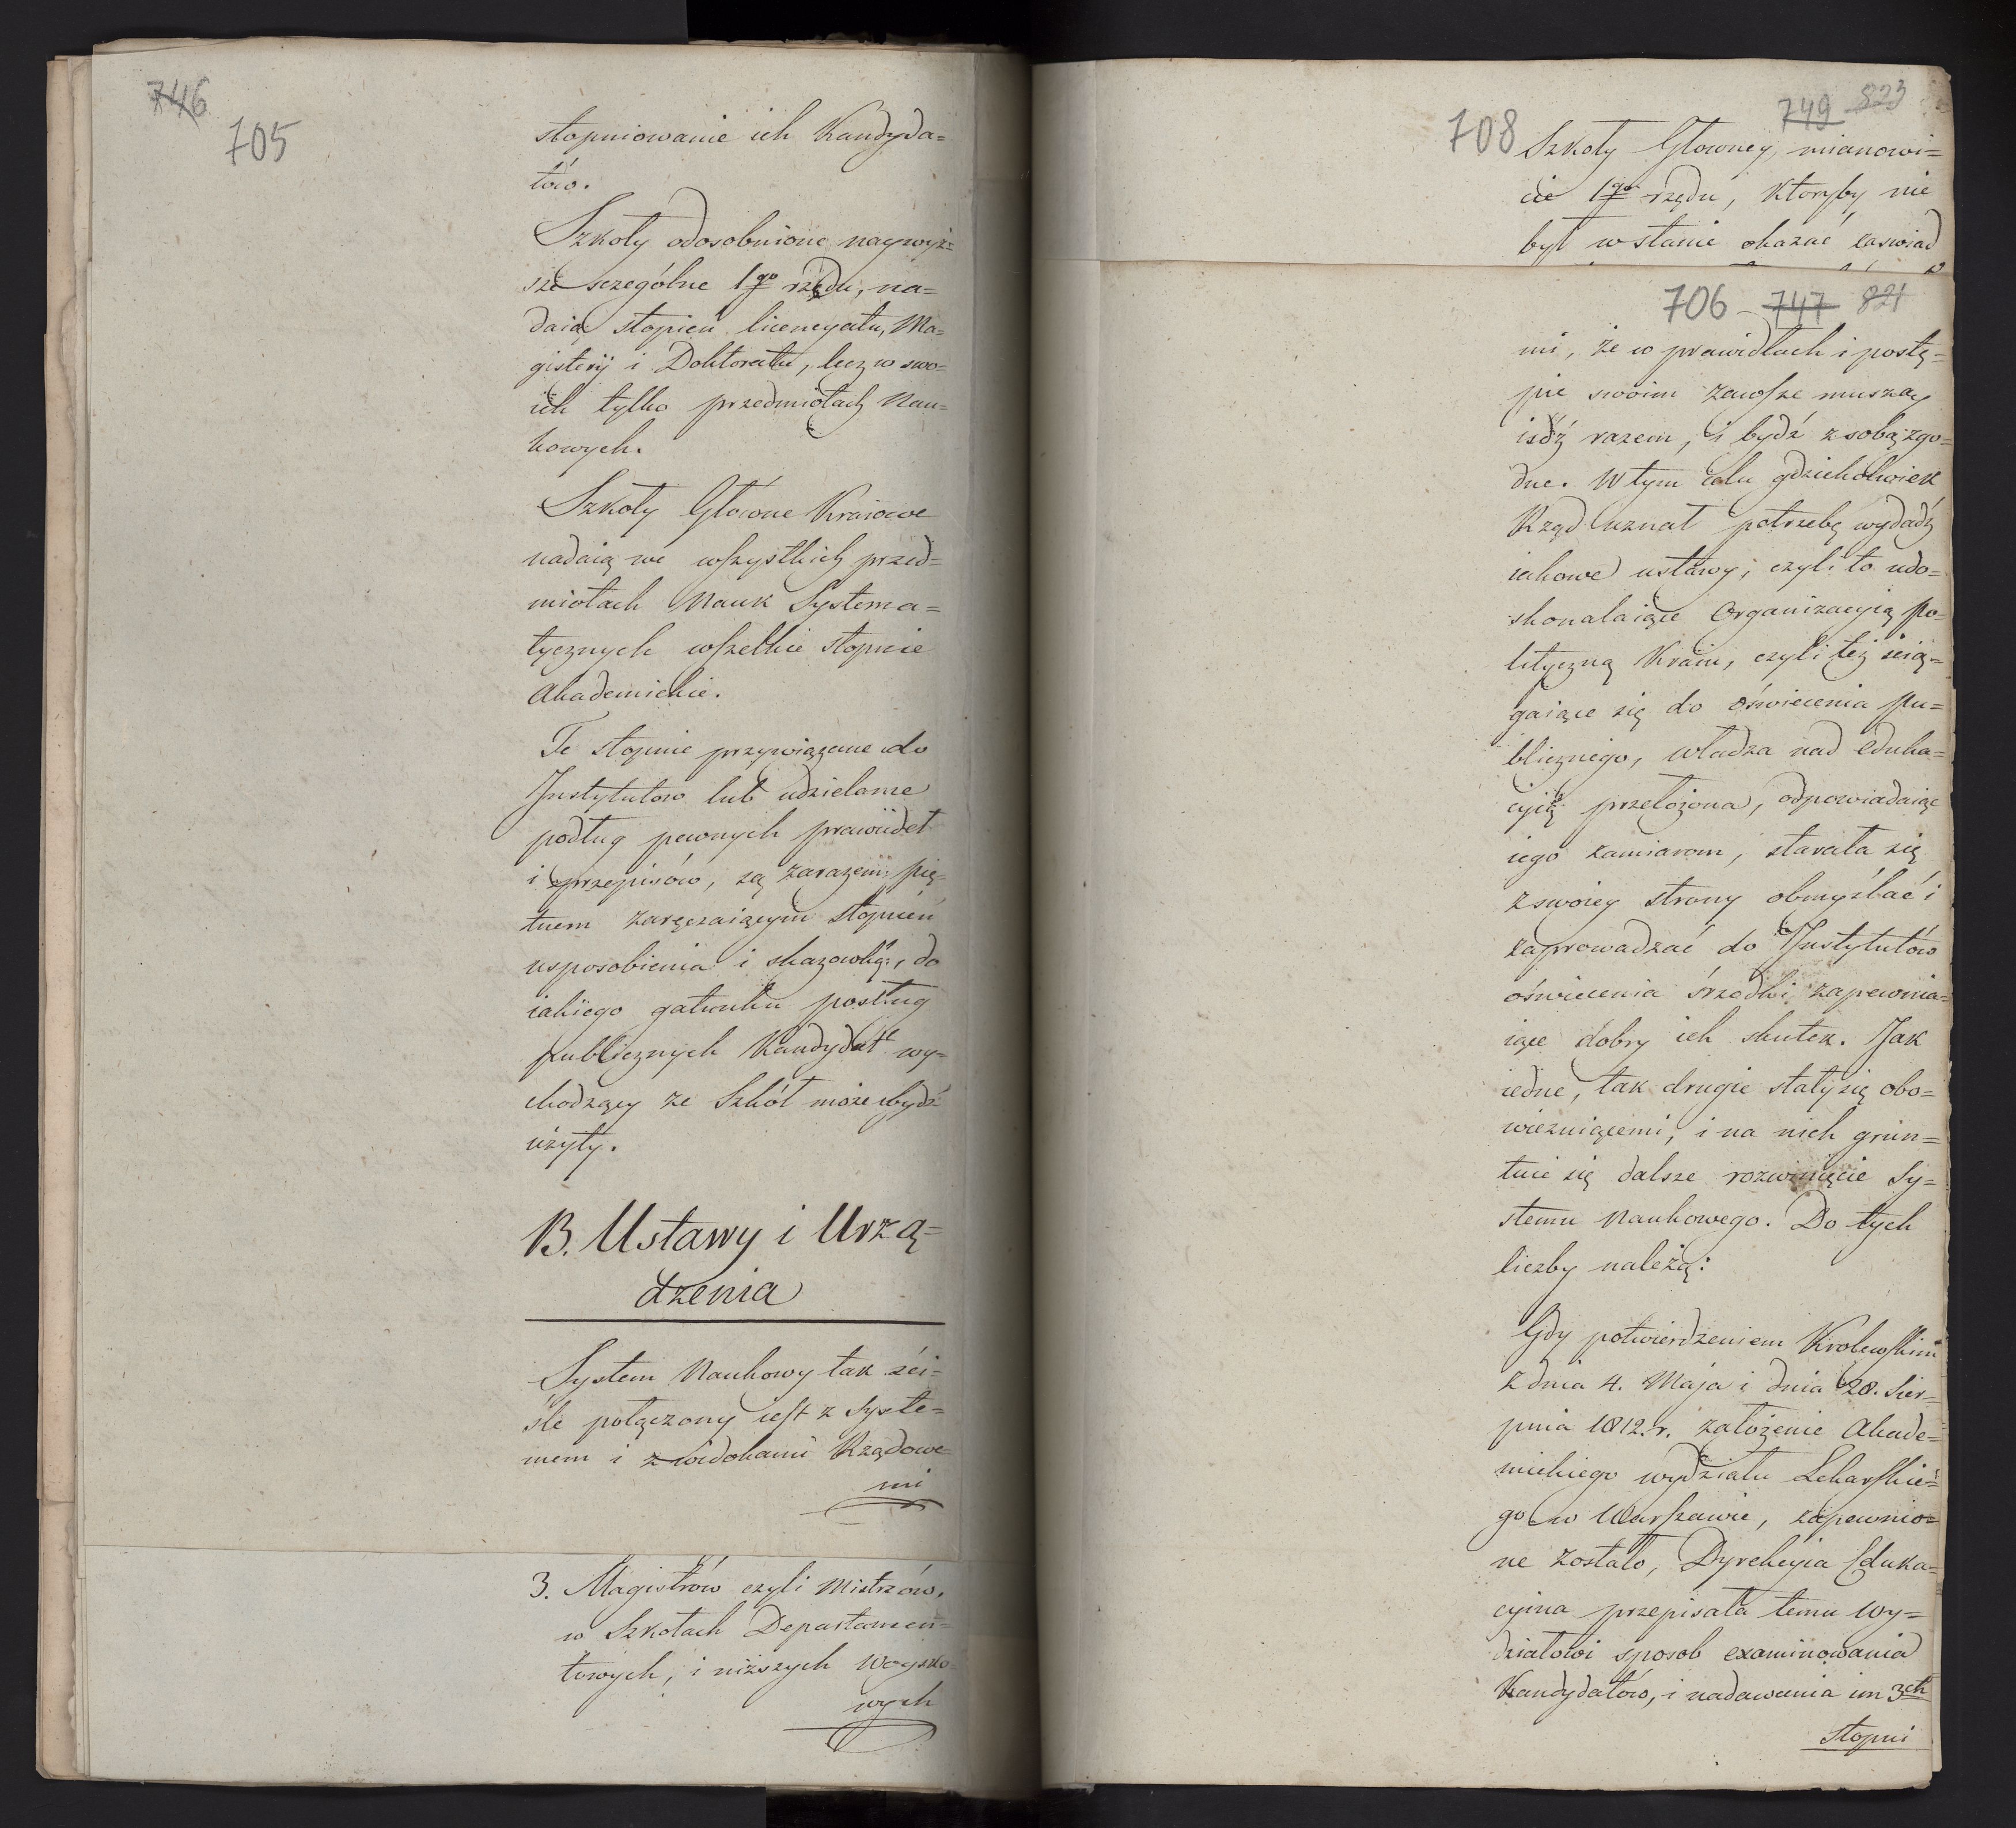 746
705
stopniowanie ich Kandyda=
tów.
Szkoły odosobnione naywyż=
sze sczególne 1go rzędu, na=
daią stopień licencyatu, Ma=
gisterij i Doktoratu, lecz w swo=
ich tylko przedmiotach Nau=
kowych.
Szkoły Główne Kraiowe
nadaią we wszystkich przed=
miotach Nauk Systema=
tycznych wszelkie stopnie
Akademickie.
Te stopnie przywiązane do
Instytutow lub udzielane
podług pewnych prawideł
i przepisów, są zarazem pię=
tnem zaręczaiącym stopień
usposobienia i skazowką, do
iakiego gatunku posług
publicznych Kandydat wy=
chodzący ze Szkół może bydź
użyty.
B. Ustawy i Urzą=
dzenia
System Naukowy tak ści=
śle połączony iest z Syste=
mem i widokami Rządowe=
mi
3. Magistrów czyli Mistrzów,
w Szkołach Departamen=
towych, i niższych Woysko=
wych
708
749 823
Szkoły Główney, mianowi=
cie 1go rzędu, ktoryby nie
był w stanie okazać zaswiad
706 - 747 821
mi, że w prawidłach i postę=
pie swoim zawsze muszą
iśdź razem, i bydź z sobą zgo=
dne. W tym celu gdziekolwiek
Rząd uznał potrzebę wydadź
iakowe ustawy; czyli to udo=
skonalaiące Organizacyią Po=
lityczną Kraiu, czyli też ścią=
gaiące się do oświecenia Pu=
blicznego, władza nad Eduka=
cyią przełożona, odpowiadaiąc
iego zamiarom, starała się
z swoiey strony obmyślać i
zaprowadzać do Instytutów
oświecenia śrzodki zapewnia=
iące dobry ich skutek. Jak
iedne, tak drugie stały się obo=
wiezuiącemi, i na nich grun=
tuie się dalsze rozwinięcie Sy=
stemu Naukowego. Do tych
liczby należą:
Gdy potwierdzeniem Krolewskim
z dnia 4. Maja i dnia 28. Sier=
pnia 1812. r. założenie Akade=
mickiego wydziału Lekarskie=
go w Warszawie, zapewnio=
ne zostało, Dyrekcyia Eduka=
cyina przepisała temu Wy=
działowi sposob examinowania
Kandydatów, i nadawania im 3ch
Stopni